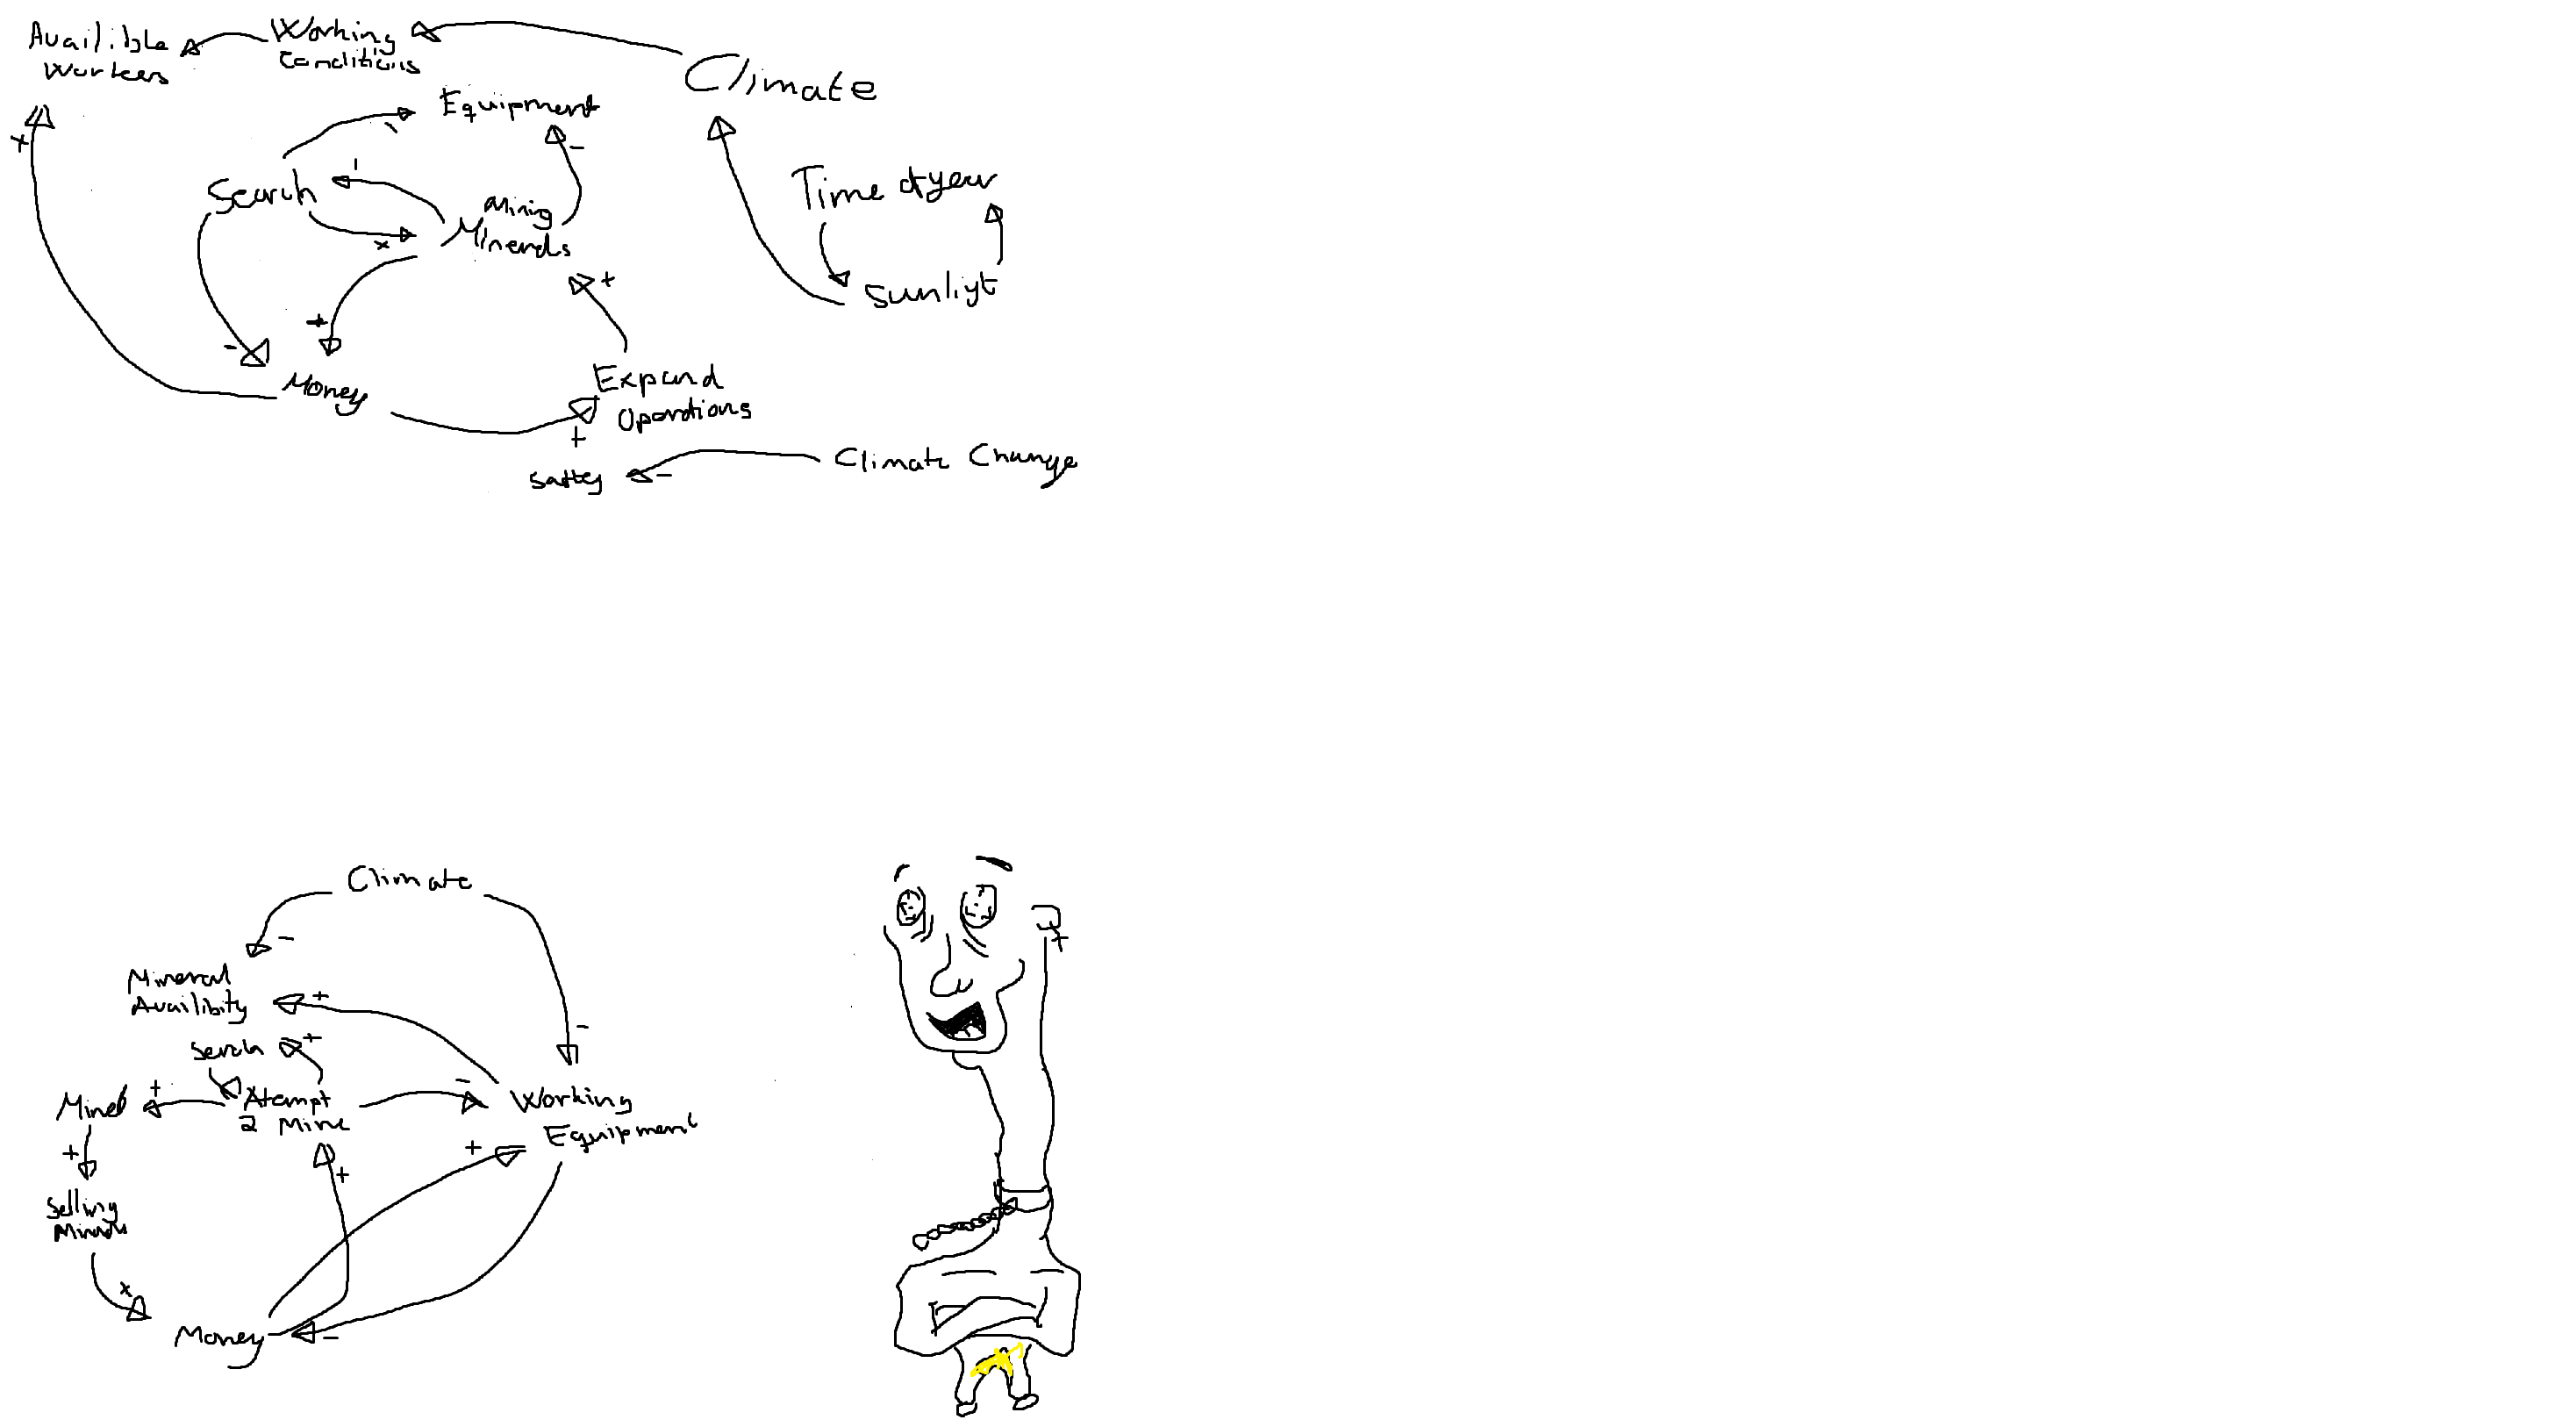 Availible
Workers
Working
Conditions
Climate
Equipment
Search
Mining
Minerals
Time of year
Sunligt
Money
Expand
Operations
Climate Change
Climate
Mineral
Availibity
Mined
Atempt
2 Mine
Working
Equipment
Selling
Money
+
-
+
-
+
-
+
+
+
-
-
-
+
+
+
-
+
+
+
-